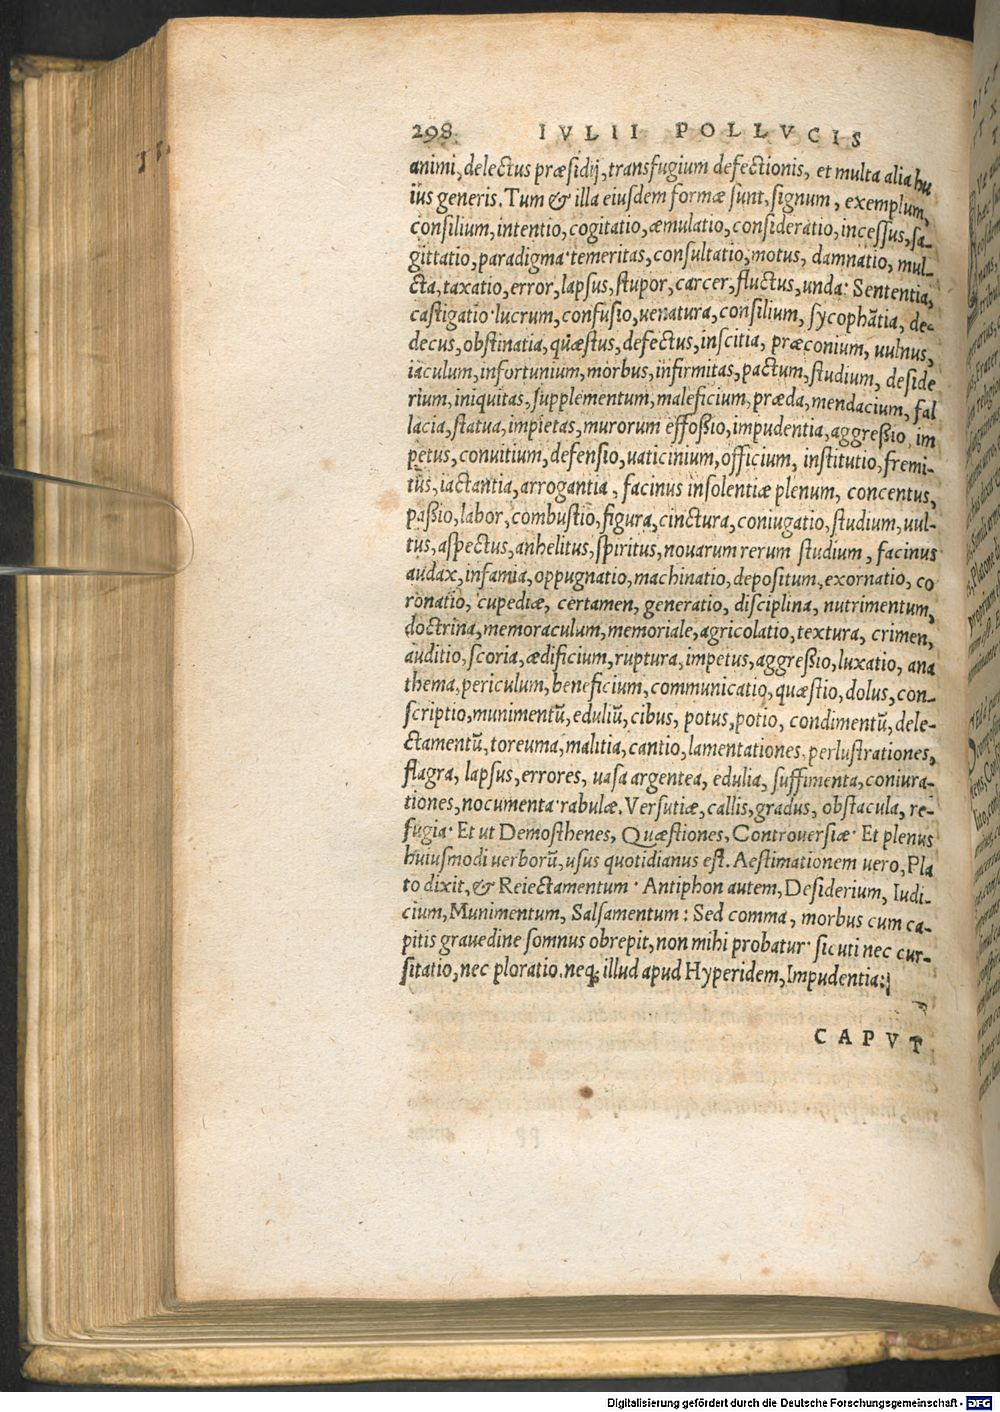 298 IVLII POLLVCIS
animi, delectus præsidij, transfugium defectionis, et multa alia hu
ius generis. Tum & illa eiusdem formæ sunt, signum, exemplum,
consilium, intentio, cogitatio, æmulatio, consideratio, incessus, sa-
gittatio, paradigma· temeritas, consultatio, motus, damnatio, mul-
cta, taxatio, error, lapsus, stupor, carcer, fluctus, unda: Sententia,
castigatio· lucrum, confusio, uenatura, consilium, sycophātia, de-
decus, obstinatia, quæstus, defectus, inscitia, præconium, uulnus,
iaculum, infortunium, morbus, infirmitas, pactum, studium, deside
rium, iniquitas, supplementum, maleficium, præda, mendacium, fal
lacia, statua, impietas, murorum effossio, impudentia, aggressio, im
petus, conuitium, defensio, uaticinium, officium, institutio, fremi-
tus, iactantia, arrogantia, facinus insolentiæ plenum, concentus,
passio, labor, combustio, figura, cinctura, coniugatio, studium, uul-
tus, aspectus, anhelitus, spiritus, nouarum rerum studium, facinus
audax, infamia, oppugnatio, machinatio, depositum, exornatio, co
ronatio, cupediæ, certamen, generatio, disciplina, nutrimentum,
doctrina, memoraculum, memoriale, agricolatio, textura, crimen,
auditio, scoria, ædificium, ruptura, impetus, aggressio, luxatio, ana
thema, periculum, beneficium, communicatio, quæstio, dolus, con-
scriptio, munimentū, eduliū, cibus, potus, potio, condimentū, dele-
ctamentū, toreuma, malitia, cantio, lamentationes, perlustrationes,
flagra, lapsus, errores, uasa argentea, edulia, suffimenta, coniura-
tiones, nocumenta· rabulæ. Versutiæ, callis, gradus, obstacula, re-
fugia· Et ut Demosthenes, Quæstiones, Controuersiæ· Et plenus
huiusmodi uerborū, usus quotidianus est. Aestimationem uero, Pla
to dixit, & Reiectamentum· Antiphon autem, Desiderium, Iudi-
cium, Munimentum, Salsamentum: Sed comma, morbus cum ca-
pitis grauedine somnus obrepit, non mihi probatur· sicuti nec cur-
sitatio, nec ploratio. neq; illud apud Hyperidem, Impudentia:
CAPVT
Digitalisierung gefördert durch die Deutsche Forschungsgemeinschaft - DFG